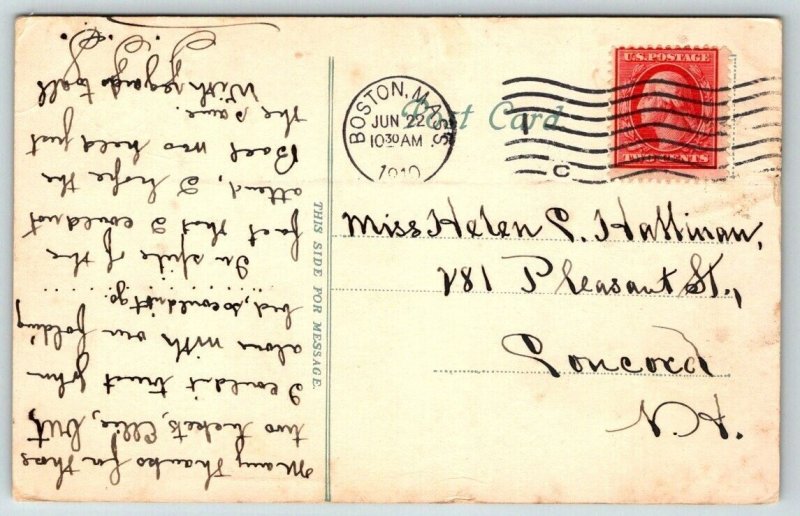 Many Thanks for those
two tickets, Ellie, but,
I couldn't trust John
alone with our folding
bed, so couldn't go.
In spite of the
fact that I could not
attend, I hope the
Ball was held just
the same.
With regards to all
THIS SIDE FOR MESSAGE.
Post Card
BOSTON, MASS.
JUN 22
10 30 AM
1910
C
U.S. POSTAGE
TWO CENTS
Miss Helen C. Hallinan,
281 Pleasant St.,
Concord
N.H.